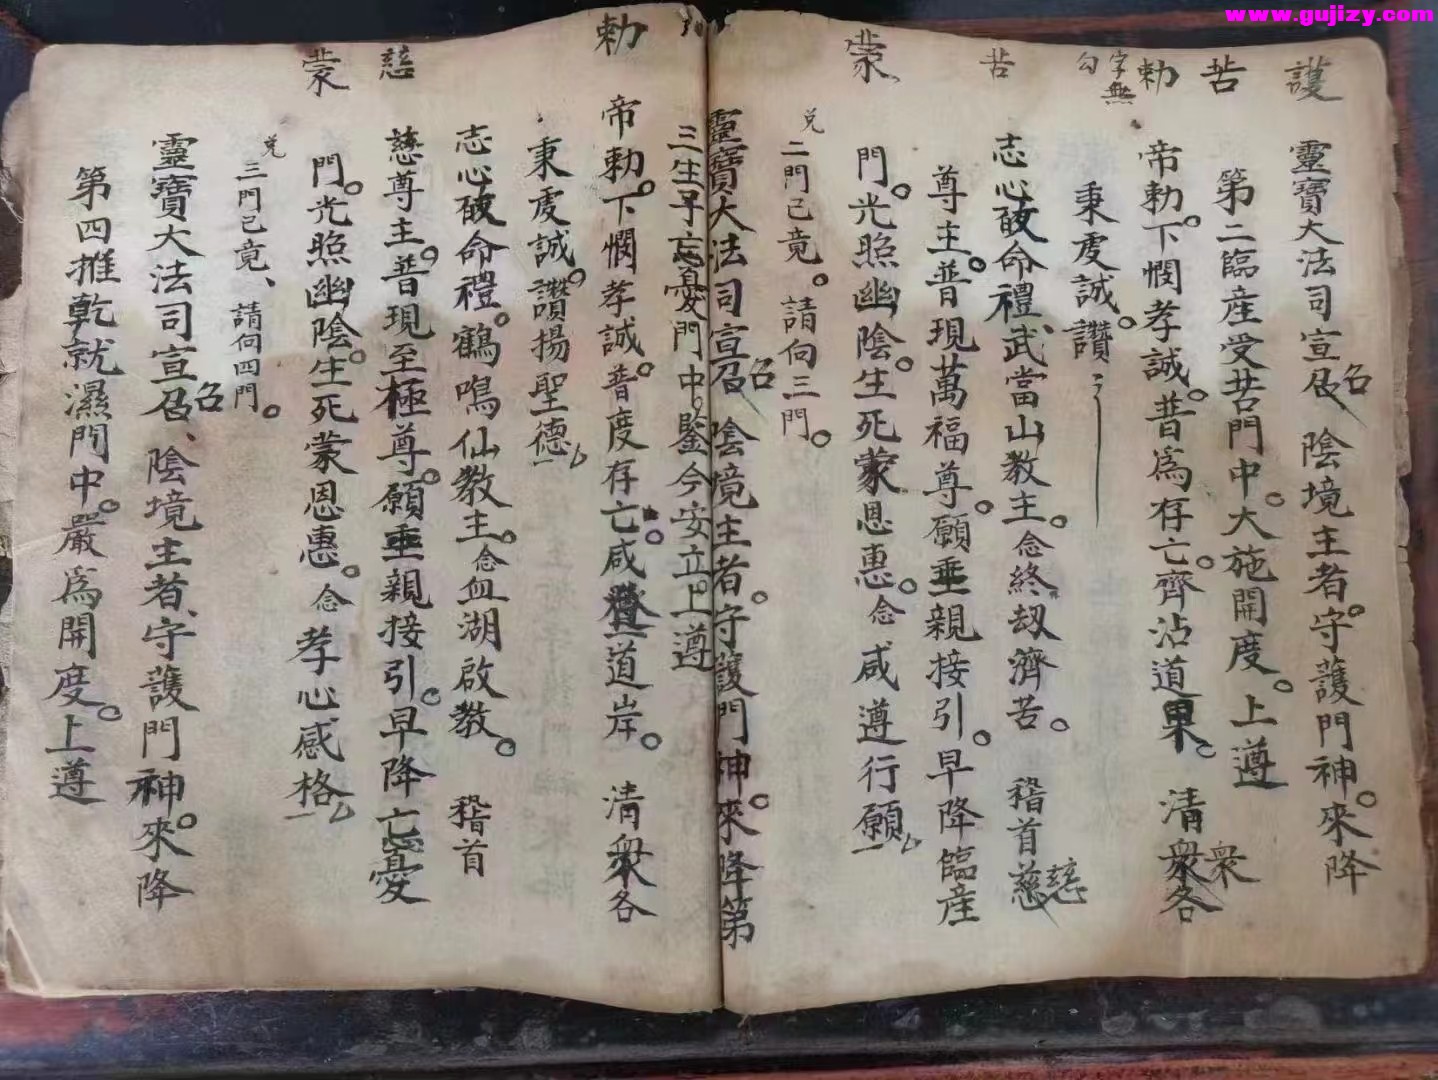 www.gujizy.com
護
靈寶大法司宣召召 陰境主者。守護門神。來降
苦
第二臨産受苦門中。大施開度。上遵
勅
帝勅。下憫孝誠。普爲存亡。齊沾道果。 清衆衆各
字無
勾
秉虔誠。讚
苦
志心皈命禮。武當山教主。念終劫濟苦。 稽首慈慈
尊主。普現萬福尊。願垂親接引。早降臨産
蒙
門。光照幽陰。生死蒙恩惠。念咸遵行願
兑二門已竟。請向三門。
靈寶大法司宣召召 陰境主者。守護門神。來降第
三生子忘憂門中。鑒今安立。上遵
勅
帝勅。下憫孝誠。普度存亡。咸登道岸。 清衆各
秉虔誠。讚揚聖德
志心皈命禮。鶴鳴仙教主。念血湖啟教。 稽首
慈
慈尊主。普現至極尊。願垂親接引。早降亡憂
蒙
門。光照幽陰。生死蒙恩惠。念孝心感格
兑三門已竟、請向四門。
靈寶大法司宣召召、陰境主者、守護門神。來降
第四推乾就濕門中。嚴爲開度。上遵